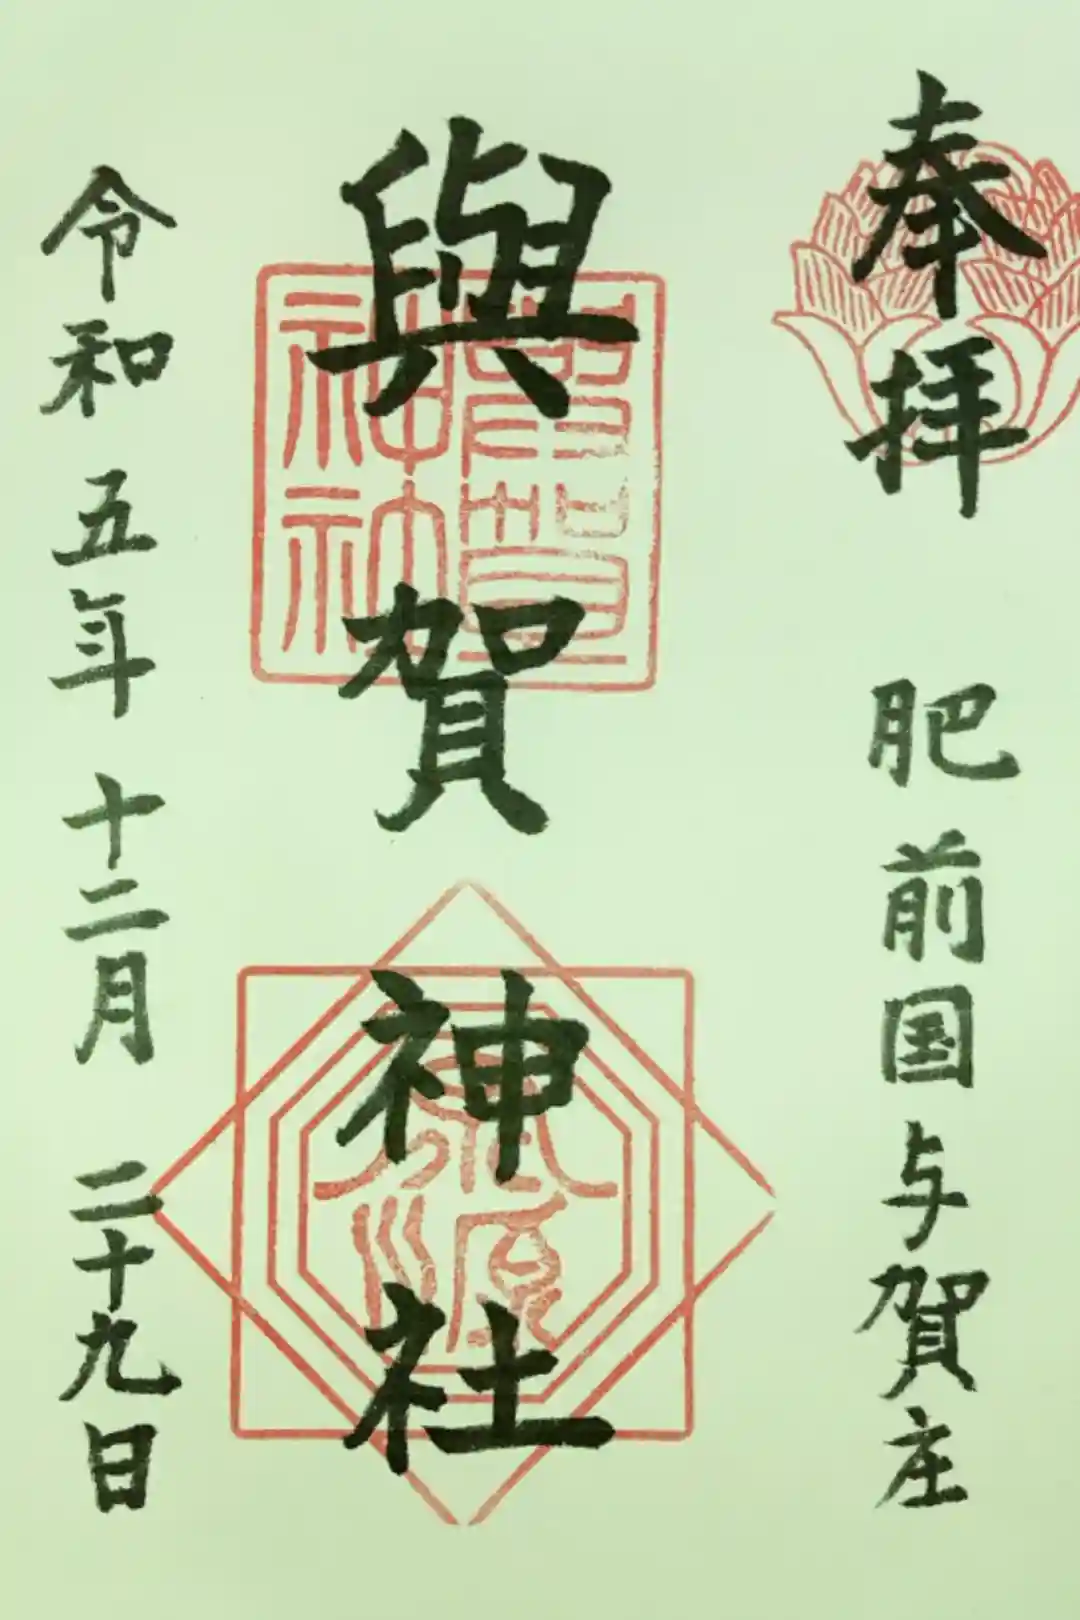 奉拝 肥前国与賀庄
與賀神社
令和五年十二月二十九日